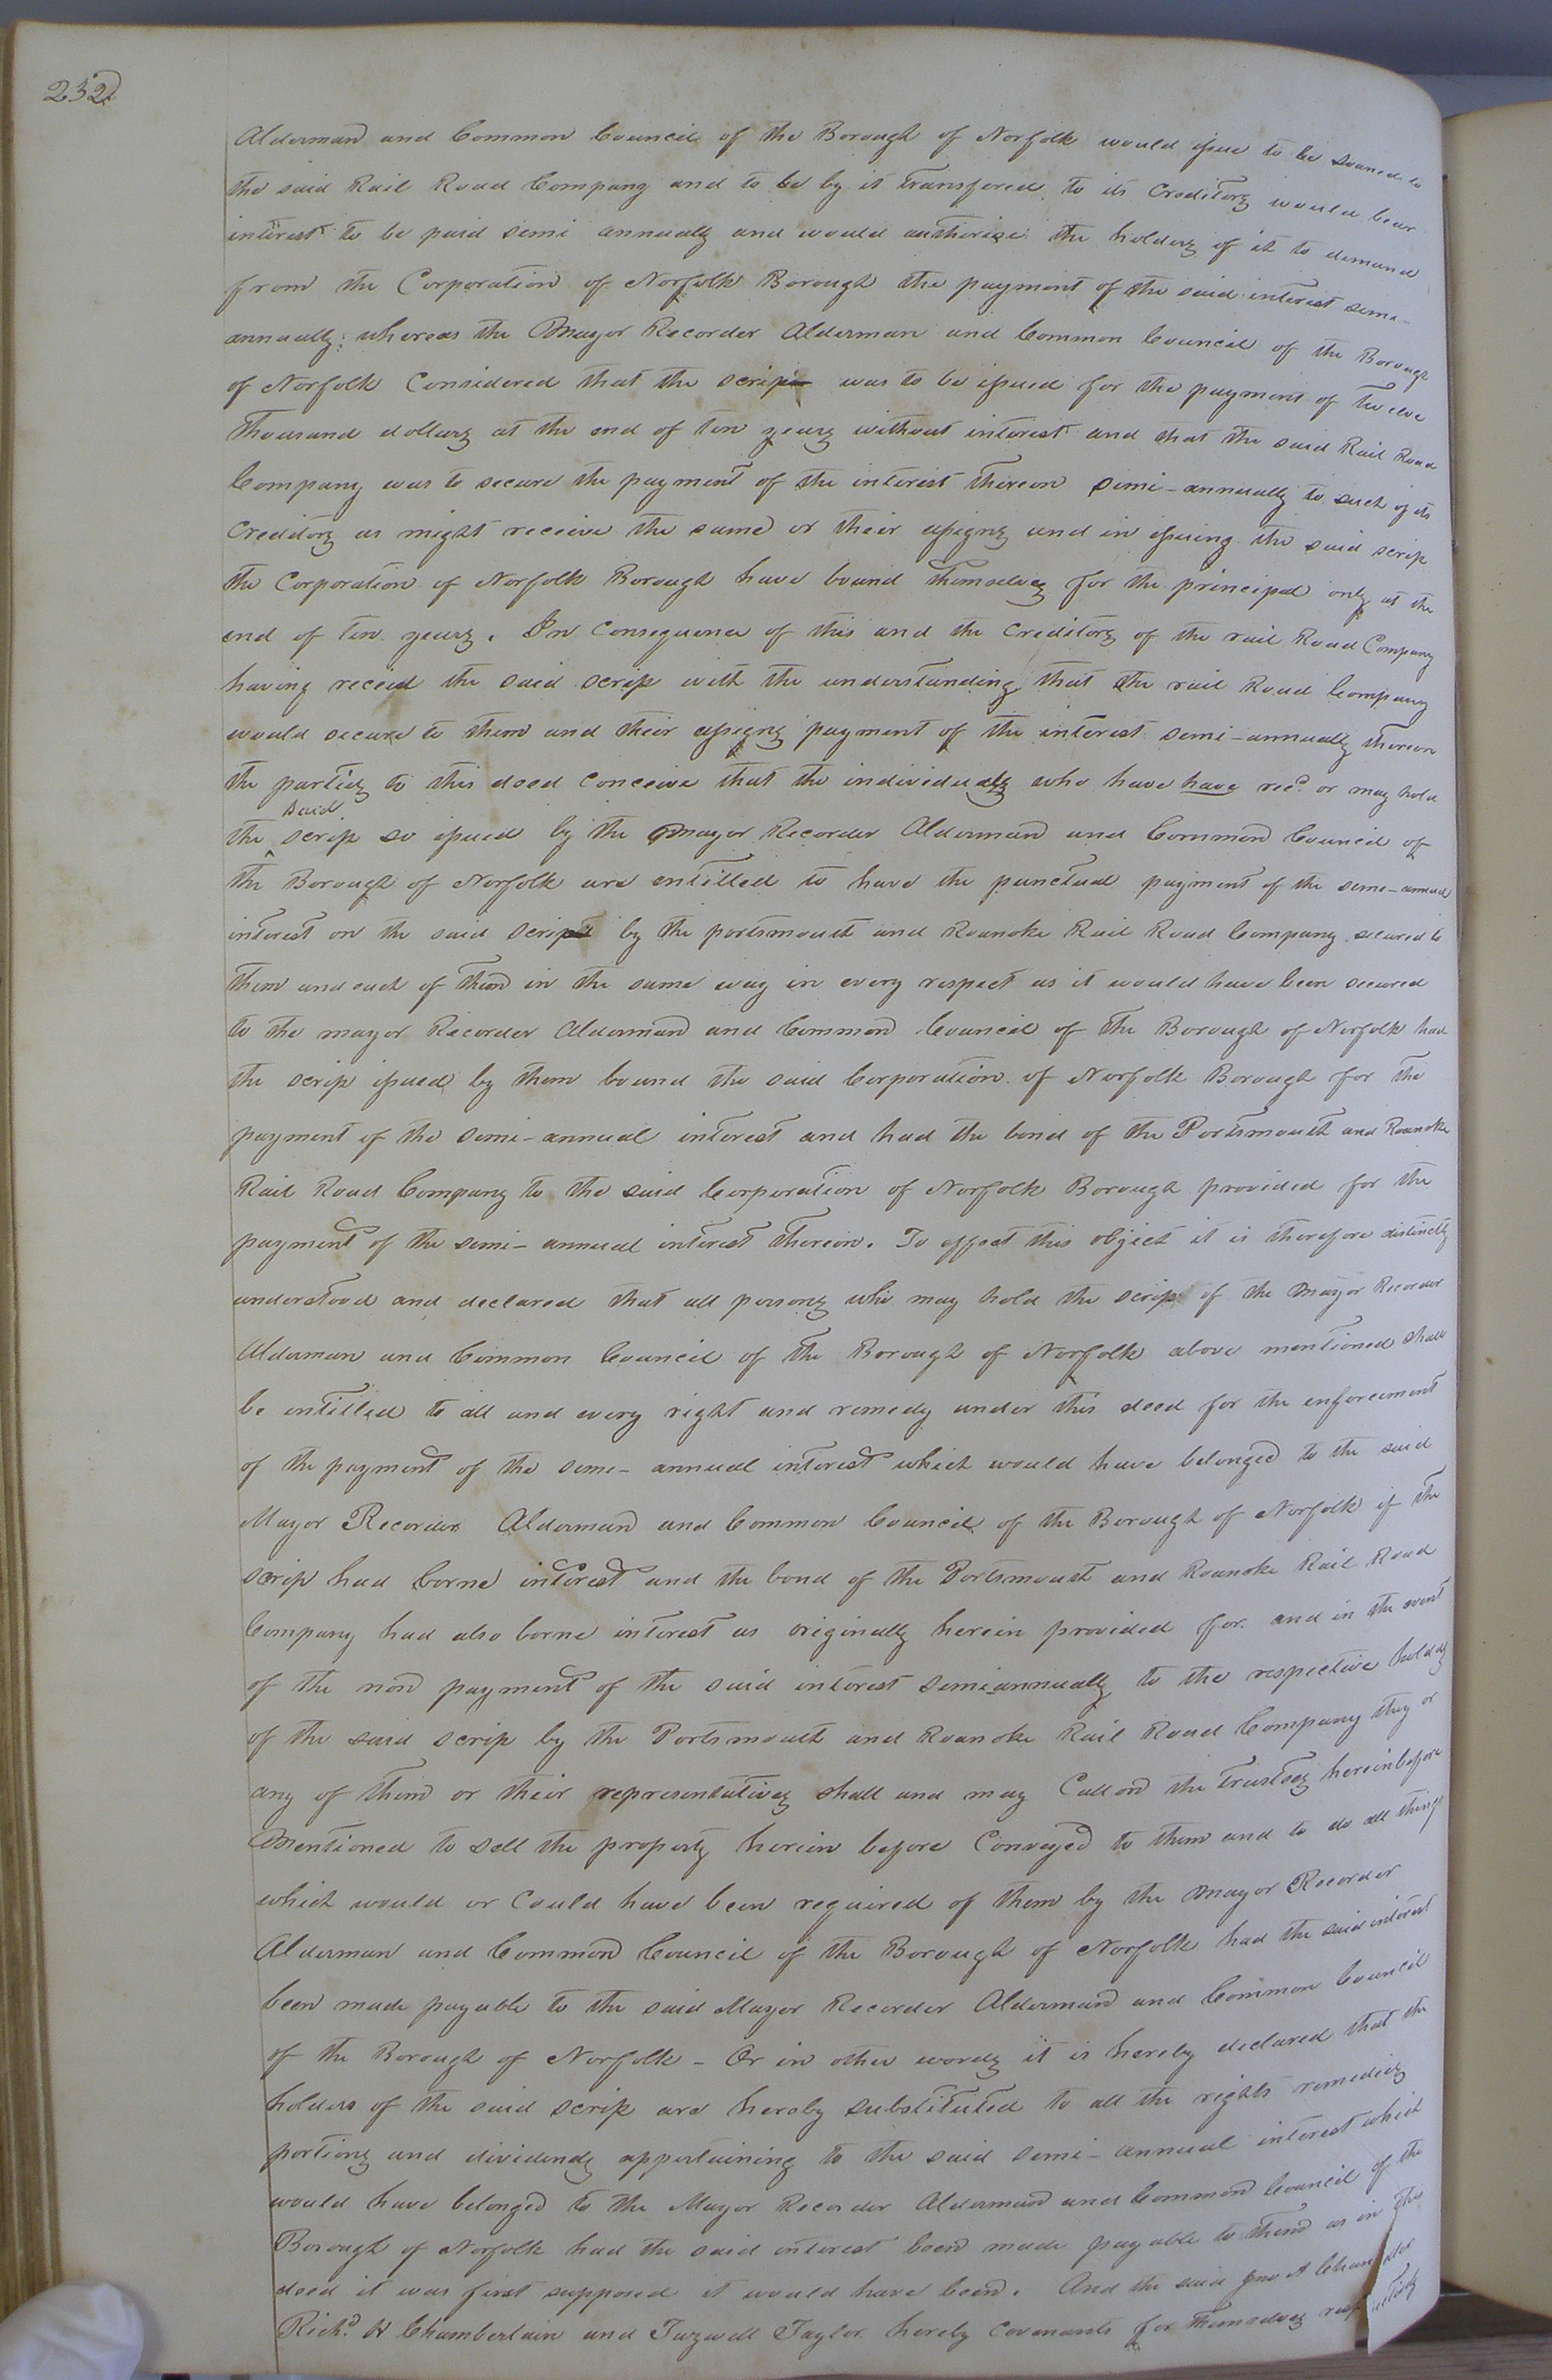 232
Alderman and Common Council of the Borough of Norfolk would issue to be loaned to
the said Rail Road Company and to be by it transfered to its Creditors would bear
interest to be paid semi annually and would authorise the holders of it to demand
from the Corporation of Norfolk Borough the payment of the said interest semi-
annually: whereas the Mayor Recorder Alderman and Common Council of the Borough
of Norfolk Considered that the scrip was to be issued for the payment of Twelve
Thousand dollars at the end of ten years without interest and that the said Rail Road
Company was to secure the payment of the interest thereon semi-annually to such of its
Creditors as might receive the same or their assigns and in issuing the said scrip
the Corporation of Norfolk Borough have bound themselves for the principal only at the
end of ten years. In Consequence of this and the Creditors of the rail Road Company
having receied the said scrip with the understanding that the rail Road Company
would secure to them and their assigns payment of the interest semi-annually thereon
the parties to this deed Conceive that the individuals who have have recd or may hold
the said scrip so issued by the Mayor Recorder Alderman and Common Council of
the Borough of Norfolk are entitled to have the punctual payment of the semi-annual
interest on the said scrip by the portsmouth and Roanoke Rail Road Company secured to
them and each of them in the same way in every respect as it would have been secured
to the mayor Recorder Alderman and Common Council of the Borough of Norfolk had
the scrip issued by them bound the said Corporation of Norfolk Borough for the
payment of the semi-annual interest and had the bond of the Portsmouth and Roanoke
Rail Road Company to the said Corporation of Norfolk Borough provided for the
payment of the semi-annual interest thereon. To effect this object it is therefore distinctly
understood and declared that all persons who may hold the scrip of the Mayor Recorder
Alderman and Common Council of the Borough of Norfolk above mentioned shall
be entitled to all and every right and remedy under this deed for the enforcement
of the payment of the semi-annual interest which would have belonged to the said
Mayor Recorder Alderman and Common Council of the Borough of Norfolk if the
scrip had borne interest and the bond of the Portsmouth and Roanoke Rail Road
Company had also borne interest as originally herein provided for. and in the event
of the non payment of the said interest semi-annually to the respective holders
of the said scrip by the Portsmouth and Roanoke Rail Road Company they or
any of them or their representatives shall and may Call on the trustees hereinbefore
Mentioned to sell the property herein before Conveyed to them and to do all things
which would or Could have been required of them by the Mayor Recorder
Alderman and Common Council of the Borough of Norfolk had the said interest
been made payable to the said Mayor Recorder Alderman and Common Council
of the Borough of Norfolk - Or in other words it is hereby declared that the
holders of the said scrip are hereby substituted to all the rights remedies
portions and dividends appertaining to the said semi-annual interest which
would have belonged to the Mayor Recorder Alderman and Common Council of the
Borough of Norfolk had the said interest been made payable to them as in this
deed it was first supposed it would have been. And the said Jno A Chandler
Richd. H Chamberlain and Tazwell Taylor hereby Covenants for themselves respectively